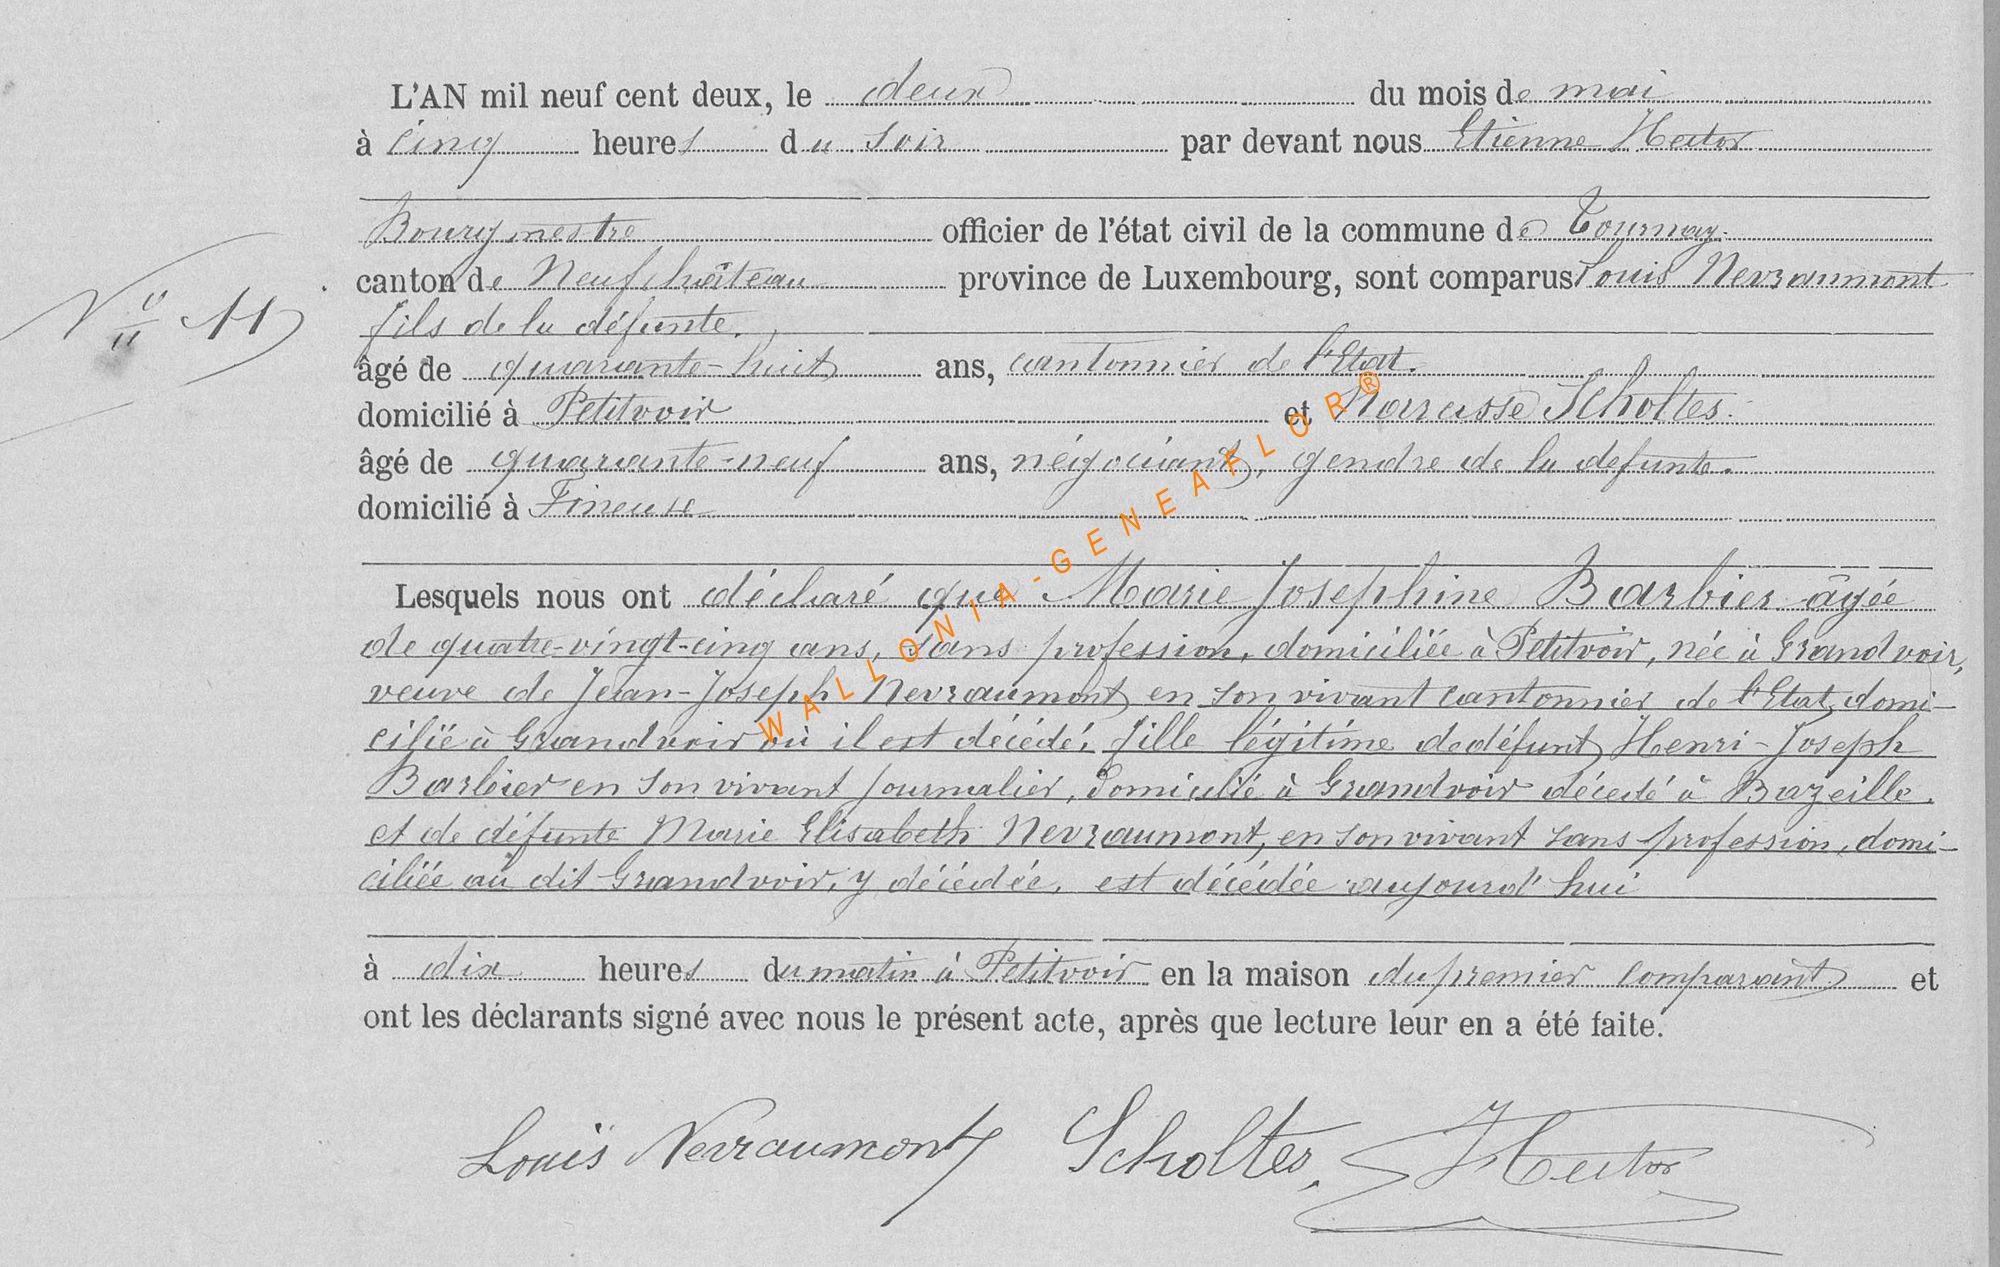 L'AN mil neuf cent deux, le deux du mois de mai
à cinq heures du soir par devant nous Etienne Hector
Bourgmestre officier de l'état civil de la commune de Tournay.
canton de Neufchâteau province de Luxembourg, sont comparus Louis Nevraumont
N° 11
fils de la défunte.
âgé de quarante-huit ans, cantonnier de l'Etat.
domicilié à Petitvoir et Narcisse Scholtes.
âgé de quarante-neuf ans, négociant, gendre de la defunte.
domicilié à Fineuse
Lesquels nous ont déclaré que Marie Josephine Barbier âgée
de quatre-vingt-cinq ans, sans profession, domiciliée à Petitvoir, née à Grandvoir,
veuve de Jean-Joseph Nevraumont en son vivant cantonnier de l'Etat, domi-
cilié à Grandvoir où il est décédé, fille légitime de défunt Henri-Joseph
Barbier en son vivant journalier, domicilié à Grandvoir décédé à Bazeille.
et de défunte Marie Elisabeth Nevraumont, en son vivant sans profession, domi-
ciliée au dit Grandvoir, y décédée, est décédée aujourd'hui
à dix heures du matin à Petitvoir en la maison du premier comparant et
ont les déclarants signé avec nous le présent acte, après que lecture leur en a été faite.
Louis Nevraumont Scholtes. Hector
WALLONIA-GENEAFLOR®